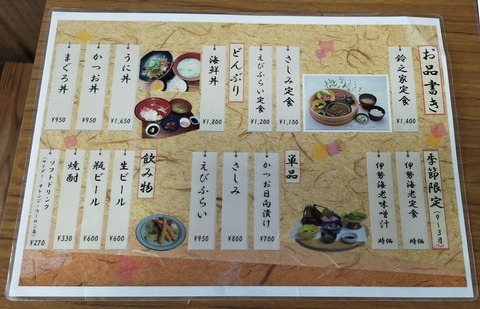 お品書き
鈴之家定食 ¥1,400
さしみ定食 ¥1,100
えびふらい定食 ¥1,200
どんぶり
海鮮丼 ¥1,800
うに丼 ¥1,650
かつお丼 ¥950
まぐろ丼 ¥950
季節限定(9~3月)
伊勢海老定食 時価
伊勢海老味噌汁 時価
単品
かつお日向漬け ¥700
さしみ ¥800
えびふらい ¥950
飲み物
生ビール ¥600
瓶ビール ¥600
焼酎 ¥330
ソフトドリンク ¥270
(サイダー・オレンジ・ウーロン茶)